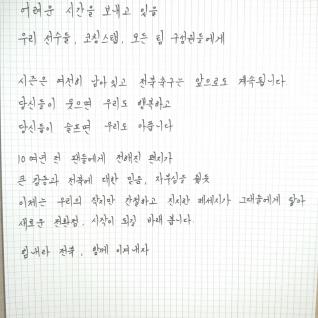 어려운 시간을 보내고 있을
우리 선수들, 코칭스탭, 모든 팀 구성원들에게
시즌은 여전히 남아있고 전북축구는 앞으로도 계속됩니다.
당신들이 웃으면 우리도 행복하고
당신들이 슬프면 우리도 아픕니다
10여년 전 팬들에게 전해진 편지가
큰 감동과 전북에 대한 믿음, 자부심을 줬듯
이제는 우리의 작지만 간절하고 진지한 메세지가 그대들에게 닿아
새로운 전환점, 시작이 되길 바래 봅니다.
힘내라 전북, 함께 이겨내자